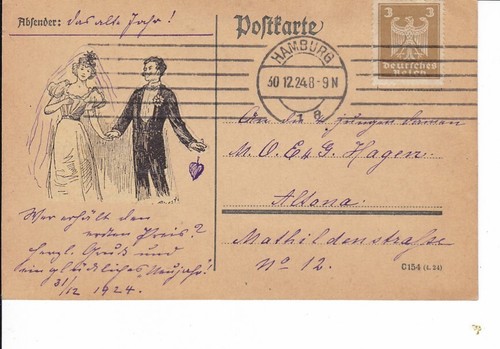 Absender: das alte Jahr!
Postkarte
HAMBURG
30.12.24 8-9 N
1 a
3 3
Deutsches
Reich
An die 2 jungen Damen
M. O. E & G. Hagen
Altona
Mathildenstraße
No 12.
Wer erhält den
ersten Preis?
Herzl. Gruß und
ein glückliches Neujahr!
31/12 1924.
C154 (4. 24)